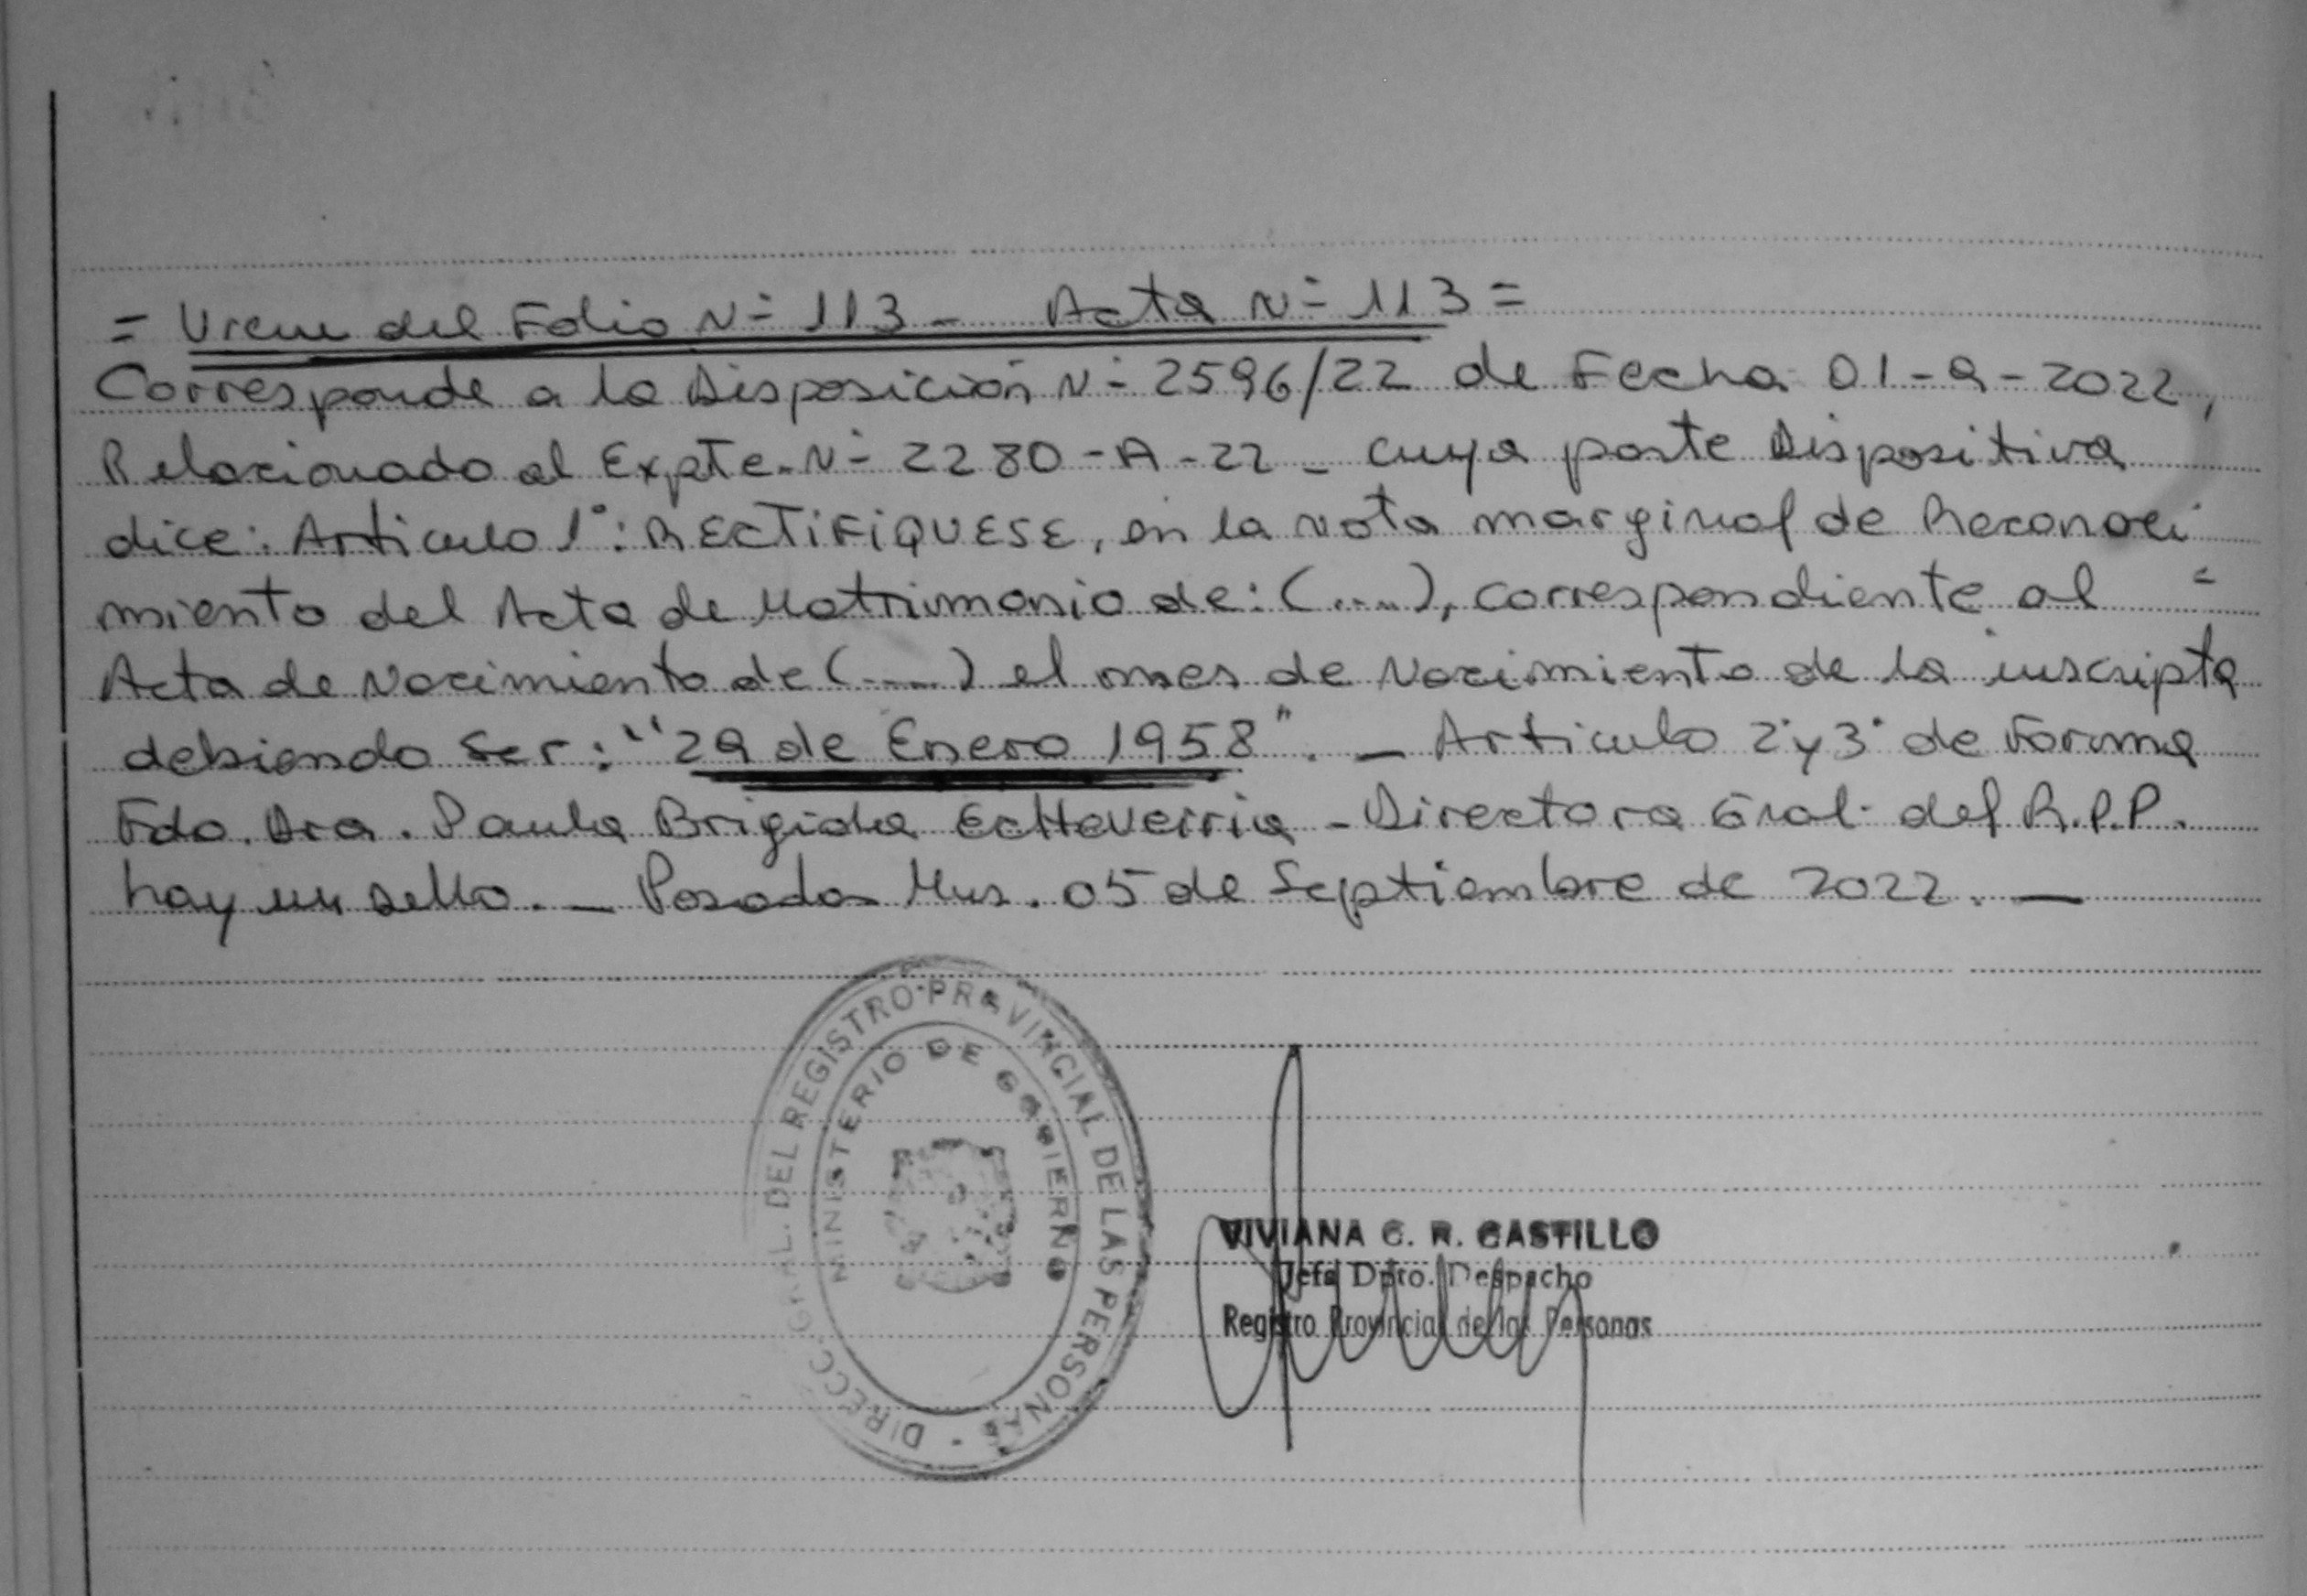 = Viene del Folio N° 113 - Acta N° 113 =
Corresponde a la Disposición N° 2596/22 de Fecha 01-9-2022,
Relacionado al Expte. N° 2280-A-22 - cuya parte Dispositiva
dice: Articulo 1°: RECTIFIQUESE, en la Nota marginal de Reconoci
miento del Acta de Matrimonio de: (....), correspondiente al =
Acta de Nacimiento de (....) el mes de Nacimiento de la inscripta
debiendo ser: "29 de Enero 1958". - Articulo 2° y 3° de Forma
Fdo. Dra. Paula Brigida Echeverria - Directora Gral. del R.P.P.
hay un sello. - Posadas Mns. 05 de Septiembre de 2022. -
DIRECC. GRAL. DEL REGISTRO PROVINCIAL DE LAS PERSONAS -
MINISTERIO DE GOBIERNO
VIVIANA C. R. CASTILLO
Jefa Dpto. Despacho
Registro Provincial de las Personas